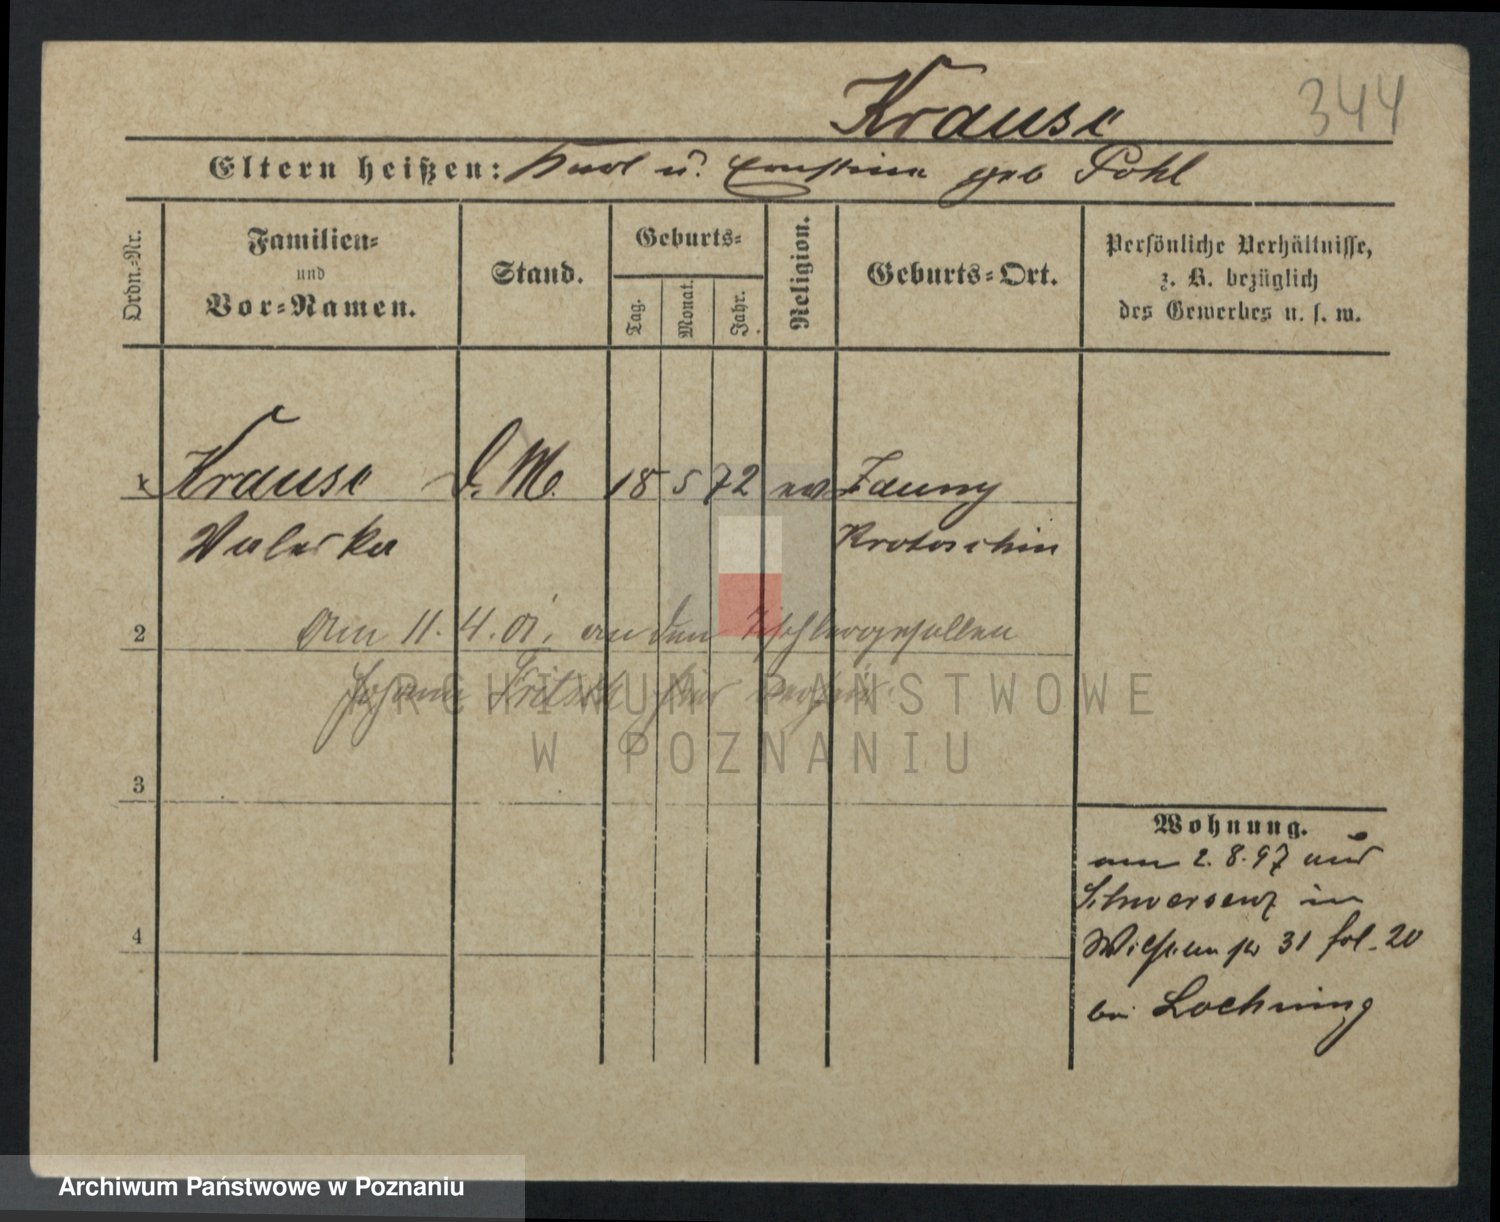 Krause
344
Eltern heißen: Karl u. Ernstine geb Pohl
Ordn.-Nr.
Familien-
und
Vor-Namen.
Stand.
Geburts-
Tag.
Monat.
Jahr.
Religion.
Geburts-Ort.
Persönliche Verhältnisse,
z. B. bezüglich
des Gewerbes u. s. w.
1 Krause D. M. 18 5 72 ev Zauny
Valeska Krotoschin
2 Am 11. 4. 01. an den Tischlergesellen
Johann hier verheir.
ARCHIWUM PAŃSTWOWE
W POZNANIU
3
4
Wohnung.
am 2. 8. 97 aus
Schwersenz in
Wilhelmstr 31 fol. 20
bei Lochning
Archiwum Państwowe w Poznaniu